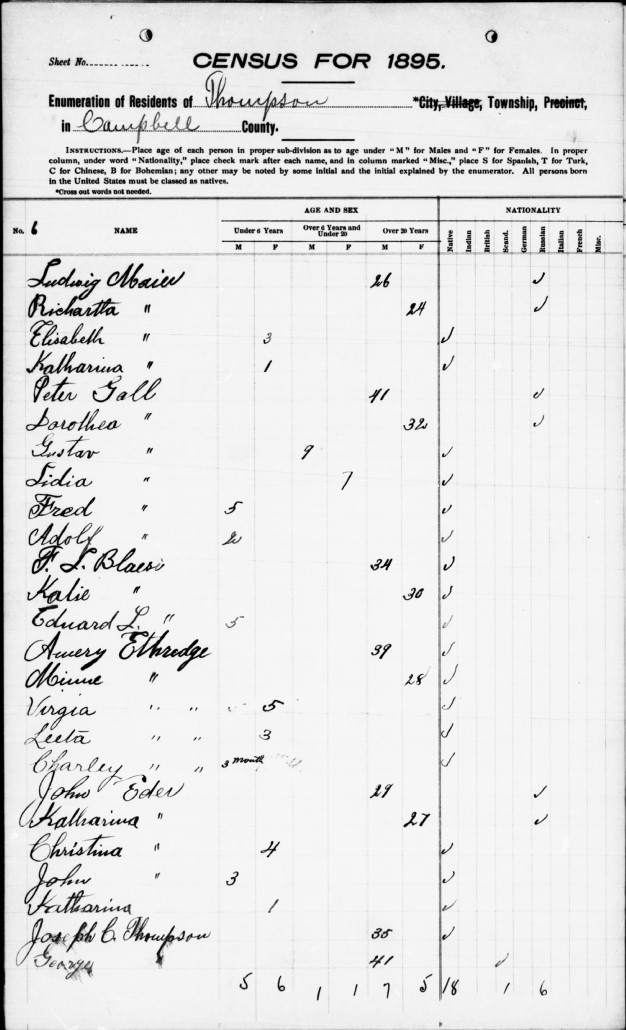 Sheet No.
CENSUS FOR 1895.
Enumeration of Residents of Thompson *City, Village, Township, Precinct,
in Campbell County.
INSTRUCTIONS.—Place age of each person in proper sub-division as to age under "M" for Males and "F" for Females. In proper
column, under word "Nationality," place check mark after each name, and in column marked "Misc.," place S for Spanish, T for Turk,
C for Chinese, B for Bohemian; any other may be noted by some initial and the initial explained by the enumerator. All persons born
in the United States must be classed as natives.
*Cross out words not needed.
AGE AND SEX NATIONALITY
No. 6 NAME Under 6 Years Over 6 Years and Under 20 Over 20 Years Native Indian British Scand. German Russian Italian French Misc.
M F M F M F
Ludwig Maier 26 ✓
Richartta " 24 ✓
Elisabeth " 3 ✓
Katharina " 1 ✓
Peter Gall 41 ✓
Dorothea " 32 ✓
Gustav " 9 ✓
Lidia " 7 ✓
Fred " 5 ✓
Adolf " 2 ✓
F. L. Blaesi 34 ✓
Katie " 30 ✓
Eduard L. " 5 ✓
Amery Ethredge 39 ✓
Minne " 28 ✓
Virgia " " 5 ✓
Leeta " " 3 ✓
Charley " " 3 month ✓
John Eder 29 ✓
Katharina " 27 ✓
Christina " 4 ✓
John " 3 ✓
Katharina 1 ✓
Joseph C. Thompson 35 ✓
George " 41 ✓
5 6 1 1 7 5 18 1 6